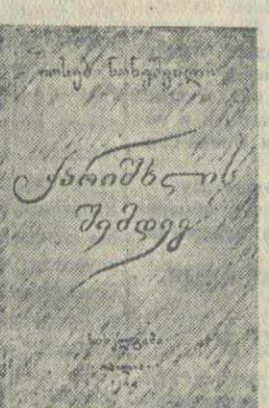 იოსებ ნონეშვილი
ქარიშხლის
შემდეგ
საბლიტგამი